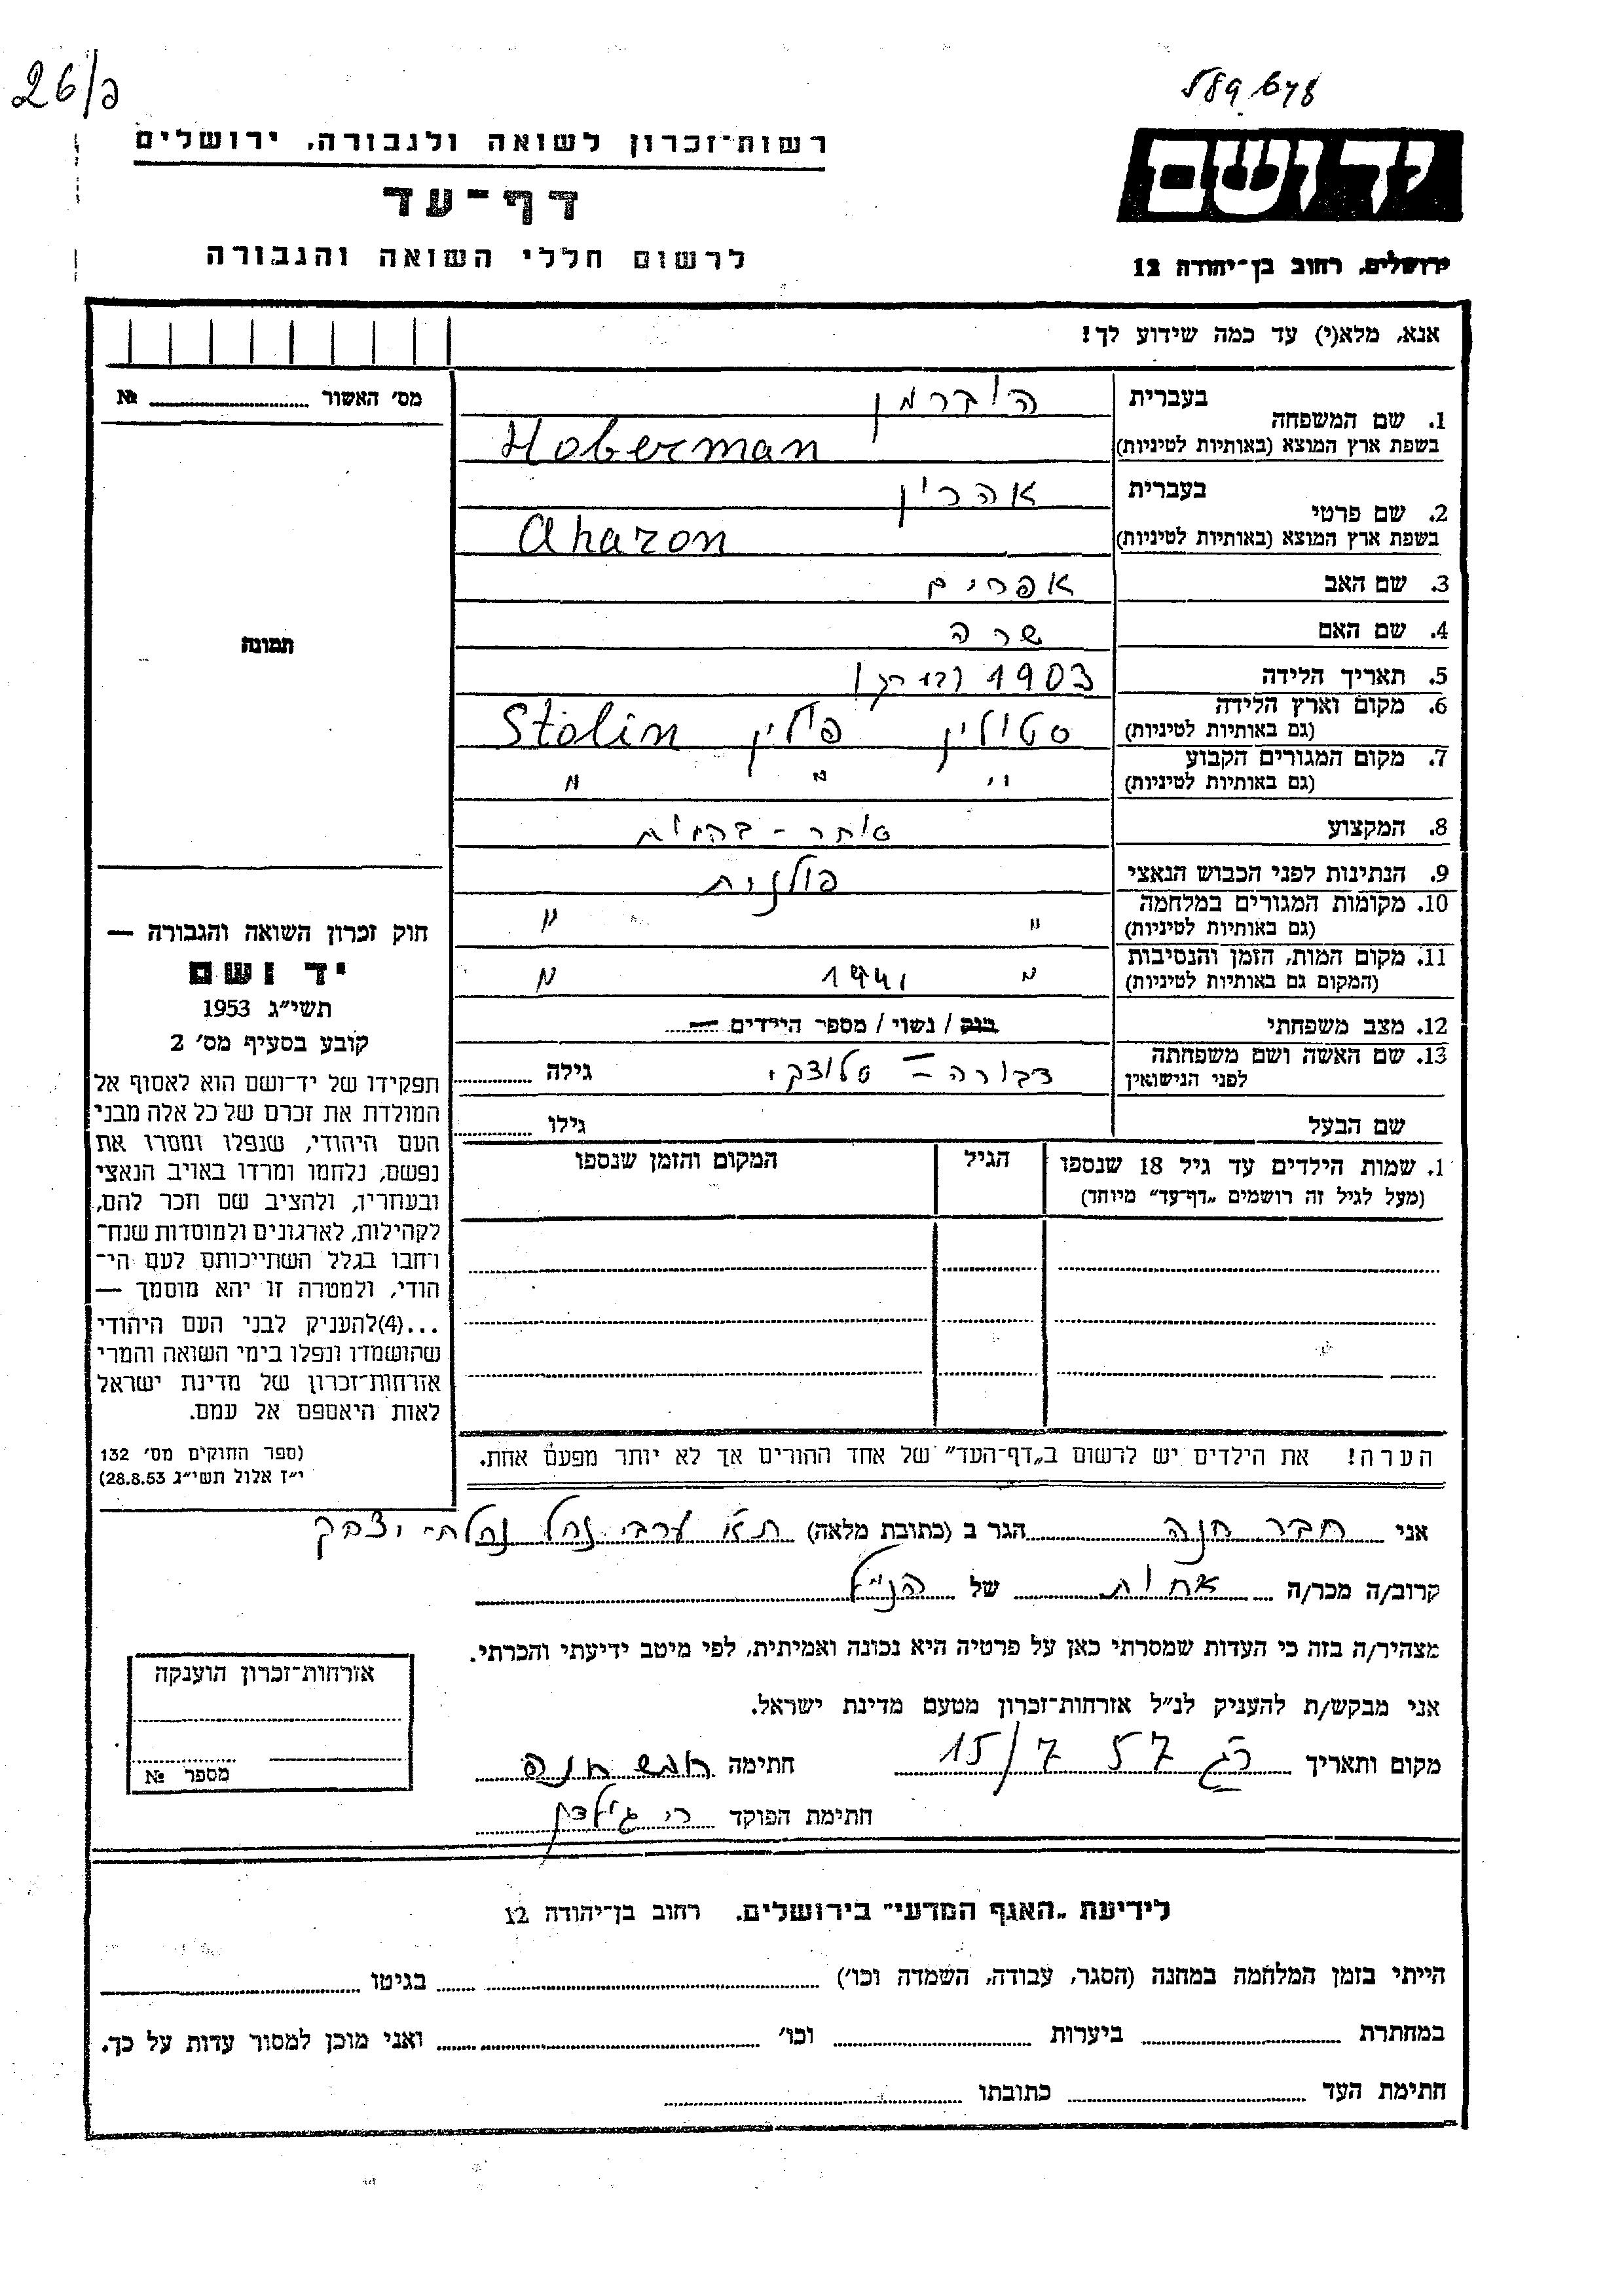 26/ב
589678
רשות־זכרון לשואה ולגבורה, ירושלים
דף־עד
לרשום חללי השואה והגבורה
יד ושם
ירושלים, רחוב בן־יהודה 12
אנא, מלא(י) עד כמה שידוע לך!
מס׳ האשור № 
1. שם המשפחה בעברית הוברמן
בשפת ארץ המוצא (באותיות לטיניות) Hoberman
2. שם פרטי בעברית אהרון
בשפת ארץ המוצא (באותיות לטיניות) Aharon
3. שם האב אפרים
4. שם האם שרה
תמונה
5. תאריך הלידה 1903
6. מקום וארץ הלידה (גם באותיות לטיניות) סטולין פולין Stolin
7. מקום המגורים הקבוע (גם באותיות לטיניות) " " "
8. המקצוע סוחר - בהמות
9. הנתינות לפני הכבוש הנאצי פולנית
10. מקומות המגורים במלחמה (גם באותיות לטיניות) " "
11. מקום המות, הזמן והנסיבות (המקום גם באותיות לטיניות) " 1941 "
12. מצב משפחתי רווק / נשוי / מספר הילדים
13. שם האשה ושם משפחתה לפני הנישואין דבורה – סלוצקי גילה
שם הבעל גילו
1. שמות הילדים עד גיל 18 שנספו
(מעל לגיל זה רושמים „דף־עד” מיוחד)
הגיל
המקום והזמן שנספו
הערה! את הילדים יש לרשום ב„דף־העד” של אחד ההורים אך לא יותר מפעם אחת.
חוק זכרון השואה והגבורה —
יד ושם
תשי״ג 1953
קובע בסעיף מס׳ 2
תפקידו של יד־ושם הוא לאסוף אל
המולדת את זכרם של כל אלה מבני
העם היהודי, שנפלו ומסרו את
נפשם, נלחמו ומרדו באויב הנאצי
ובעוזריו, ולהציב שם וזכר להם,
לקהילות, לארגונים ולמוסדות שנח־
רבו בגלל השתייכותם לעם הי־
הודי, ולמטרה זו יהא מוסמך —
...(4)להעניק לבני העם היהודי
שהושמדו ונפלו בימי השואה והמרי
אזרחות־זכרון של מדינת ישראל
לאות היאספם אל עמם.
(ספר החוקים מס׳ 132
י״ז אלול תשי״ג 28.8.53)
אני חבר חנה הגר ב (כתובת מלאה) ת״א ערבי נחל נחלת יצחק
קרוב/ה מכר/ה אחות של הנ״ל
מצהיר/ה בזה כי העדות שמסרתי כאן על פרטיה היא נכונה ואמיתית, לפי מיטב ידיעתי והכרתי.
אני מבקש/ת להעניק לנ״ל אזרחות־זכרון מטעם מדינת ישראל.
מקום ותאריך רג 15/7 57 חתימה חבר חנה
חתימת הפוקד
אזרחות־זכרון הוענקה
מספר №
לידיעת „האגף המדעי” בירושלים, רחוב בן־יהודה 12
הייתי בזמן המלחמה במחנה (הסגר, עבודה, השמדה וכו׳) בגיטו
במחתרת ביערות וכו׳ ואני מוכן למסור עדות על כך.
חתימת העד כתובתו